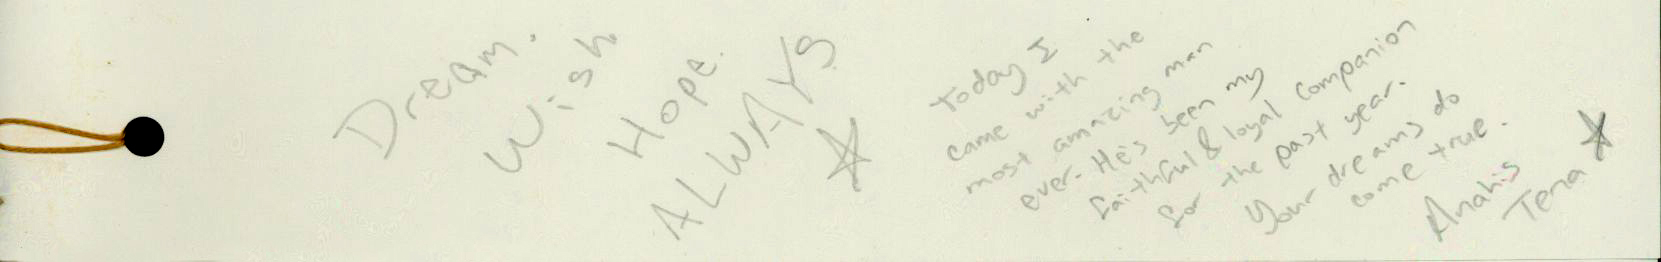 Dream.
Wish.
Hope.
ALWAYS
Today I
came with the
most amazing man
ever. He's been my
faithful & loyal companion
for the past year.
Your dreams do
come true.
Anahis
Tena